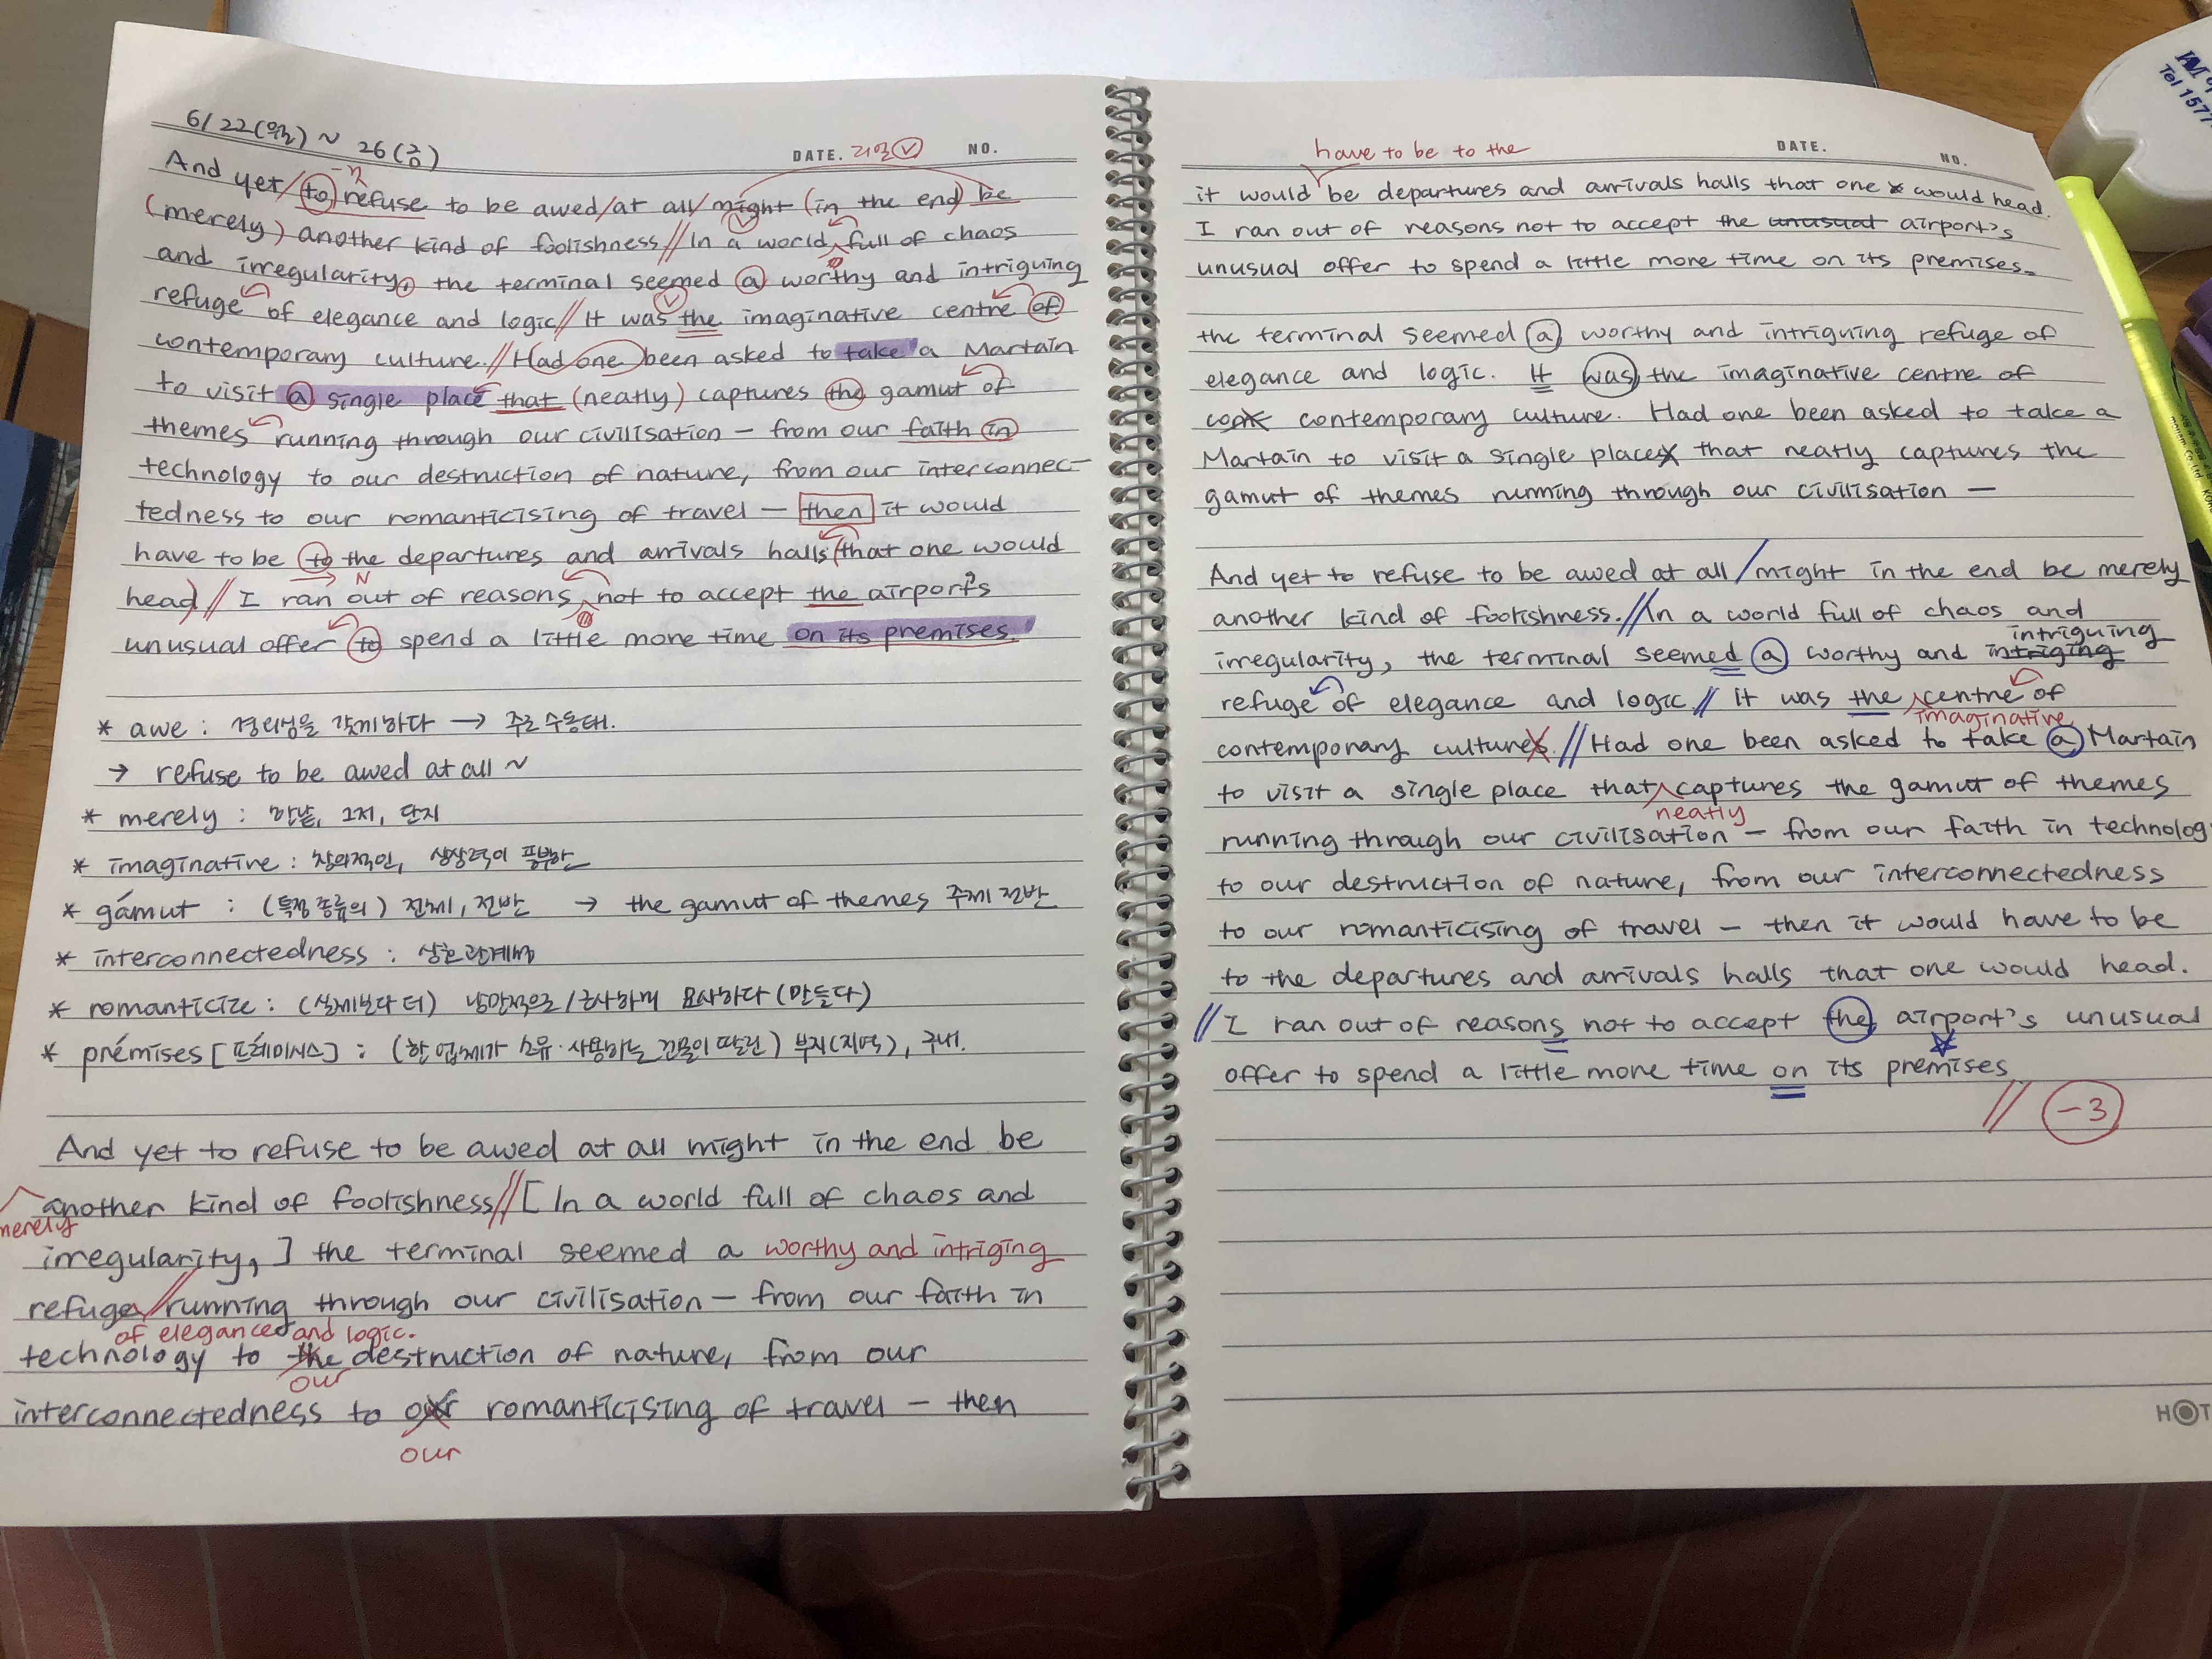 6/22(월) ~ 26(금)
DATE. 리얼 V NO.
And yet/to refuse to be awed/at all/might (in the end) be
(merely) another kind of foolishness// In a world full of chaos
and irregularity, the terminal seemed a worthy and intriguing
refuge of elegance and logic// It was the imaginative centre of
contemporary culture.// Had one been asked to take a Martain
to visit a single place that (neatly) captures the gamut of
themes running through our civilisation – from our faith in
technology to our destruction of nature, from our interconnec-
tedness to our romanticising of travel – then it would
have to be to the departures and arrivals halls (that one would
head)// I ran out of reasons not to accept the airport's
unusual offer to spend a little more time on its premises.
* awe : 경외심을 갖게하다 → 주로 수동태.
→ refuse to be awed at all ~
* merely : 한낱, 그저, 단지
* imaginative : 창의적인, 상상력이 풍부한
* gámut : (특정 종류의) 전체, 전반 → the gamut of themes 주제 전반
* interconnectedness : 상호관계성
* romanticize : (실제보다 더) 낭만적으로/근사하게 묘사하다 (만들다)
* prémises [프레미시스] : (한 업체가 소유·사용하는 건물이 딸린) 부지(지역), 구내.
And yet to refuse to be awed at all might in the end be
another kind of foolishness// [ In a world full of chaos and
merely
irregularity, ] the terminal seemed a worthy and intriging
refuge// running through our civilisation – from our faith in
of elegance and logic.
technology to the destruction of nature, from our
our
interconnectedness to our romanticising of travel – then
our
DATE. NO.
have to be to the
it would be departures and arrivals halls that one would head.
I ran out of reasons not to accept the unusual airport's
unusual offer to spend a little more time on its premises.
the terminal seemed a worthy and intriguing refuge of
elegance and logic. It was the imaginative centre of
contemporary culture. Had one been asked to take a
Martain to visit a single place that neatly captures the
gamut of themes running through our civilisation –
And yet to refuse to be awed at all/might in the end be merely
another kind of foolishness.// In a world full of chaos and
intriguing
irregularity, the terminal seemed a worthy and intriging
refuge of elegance and logic// It was the centre of
imaginative
contemporary cultures.// Had one been asked to take a Martain
to visit a single place that captures the gamut of themes
neatly
running through our civilisation – from our faith in technolog
to our destruction of nature, from our interconnectedness
to our romanticising of travel – then it would have to be
to the departures and arrivals halls that one would head.
// I ran out of reasons not to accept the airport's unusual
offer to spend a little more time on its premises
// -3
HOT
Tel 1577